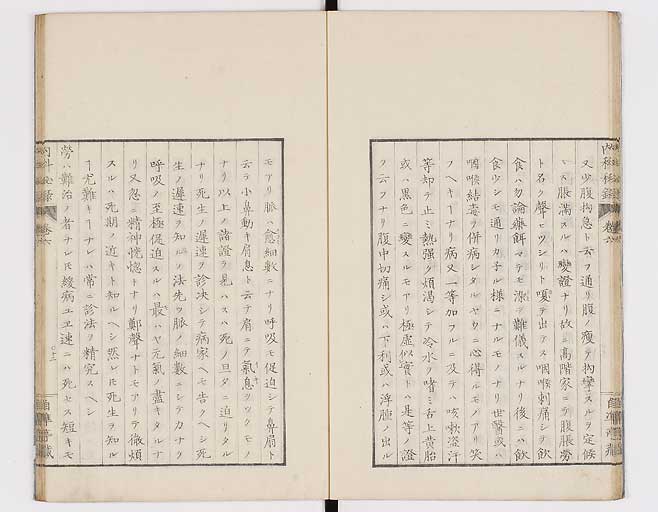 又少腹拘急ト云フ通リ腹ノ瘦テ拘攣スルヲ定候
トス脹滿スルハ變證ナリ故ニ高階家ニテ腹脹勞
ト名ク聲ヒツシリト嗄テ出テス咽喉刺痛シテ飮
食ハ勿論藥餌マテモ難儀スルナリ後ニハ飮
食少シモ通リカ子ル様ニナルモノナリ世醫或ハ
咽喉結毒ヲ併病シタルヤウニ心得ルモノアリ笑
フヘキ丁ナリ病又一等加フルニ及テハ咳嗽盜汗
等却テ止ミ熱强ク煩渴シテ冷水ヲ嗜ミ舌上黄胎
或ハ黒色ニ變スルモアリ極虛似實トハ是等ノ證
ヲ云フナリ腹中切痛シ或ハ下利或ハ浮腫ノ出ル
モアリ脈ハ愈細數ニナリ呼吸モ促迫シテ鼻扇ト
云テ小鼻動キ肩息ト云テ肩ニテ氣息ヲツクモノ
ナリ以上ノ諸證ヲ見ハスハ死ノ旦タニ迫リタル
ナリ死生ノ遲速ヲ診决シテ病家ヘモ告クヘシ死
生ノ遲速ヲ知ルノ法先ツ脈ノ細數ニシテカナク
呼吸ノ至極促迫スルハ最ハヤ元氣ノ盡キタルナ
リ又忽ニ精神恍惚トナリ鄭聲ナトモアリテ微煩
スルハ死期ノ近キト知ルヘシ然レ𪜈死生ヲ知ル
丁尤難キ丁ナレハ常ニ診法ヲ精究スヘシ
勞ハ難治ノ者ナレ𪜈緩病ユヱ速ニハ死セス短キモ
内科秘録
卷六
自準亭藏